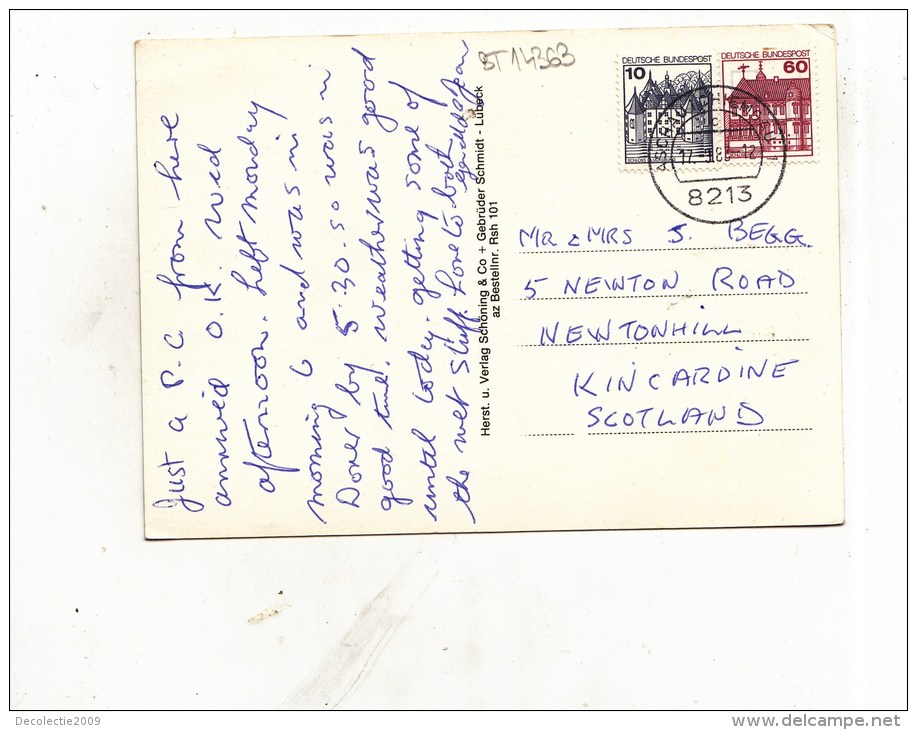 Just a P.C from here
arrived O.K. Wed
afternoon. Left Monday
morning 6 and was in
Dover by 5.30. so was in
good time. Weather was good
until today. getting some of
the wet stuff. Love to both
BT14363
Herst. u. Verlag Schöning & Co + Gebrüder Schmidt - Lübeck
az Bestellnr. Rsh 101
DEUTSCHE BUNDESPOST
10
DEUTSCHE BUNDESPOST
60
8213
MR & MRS J. BEGG.
5 NEWTON ROAD
NEWTONHILL
KINCARDINE
SCOTLAND
Decolectie2009
delcampe.net